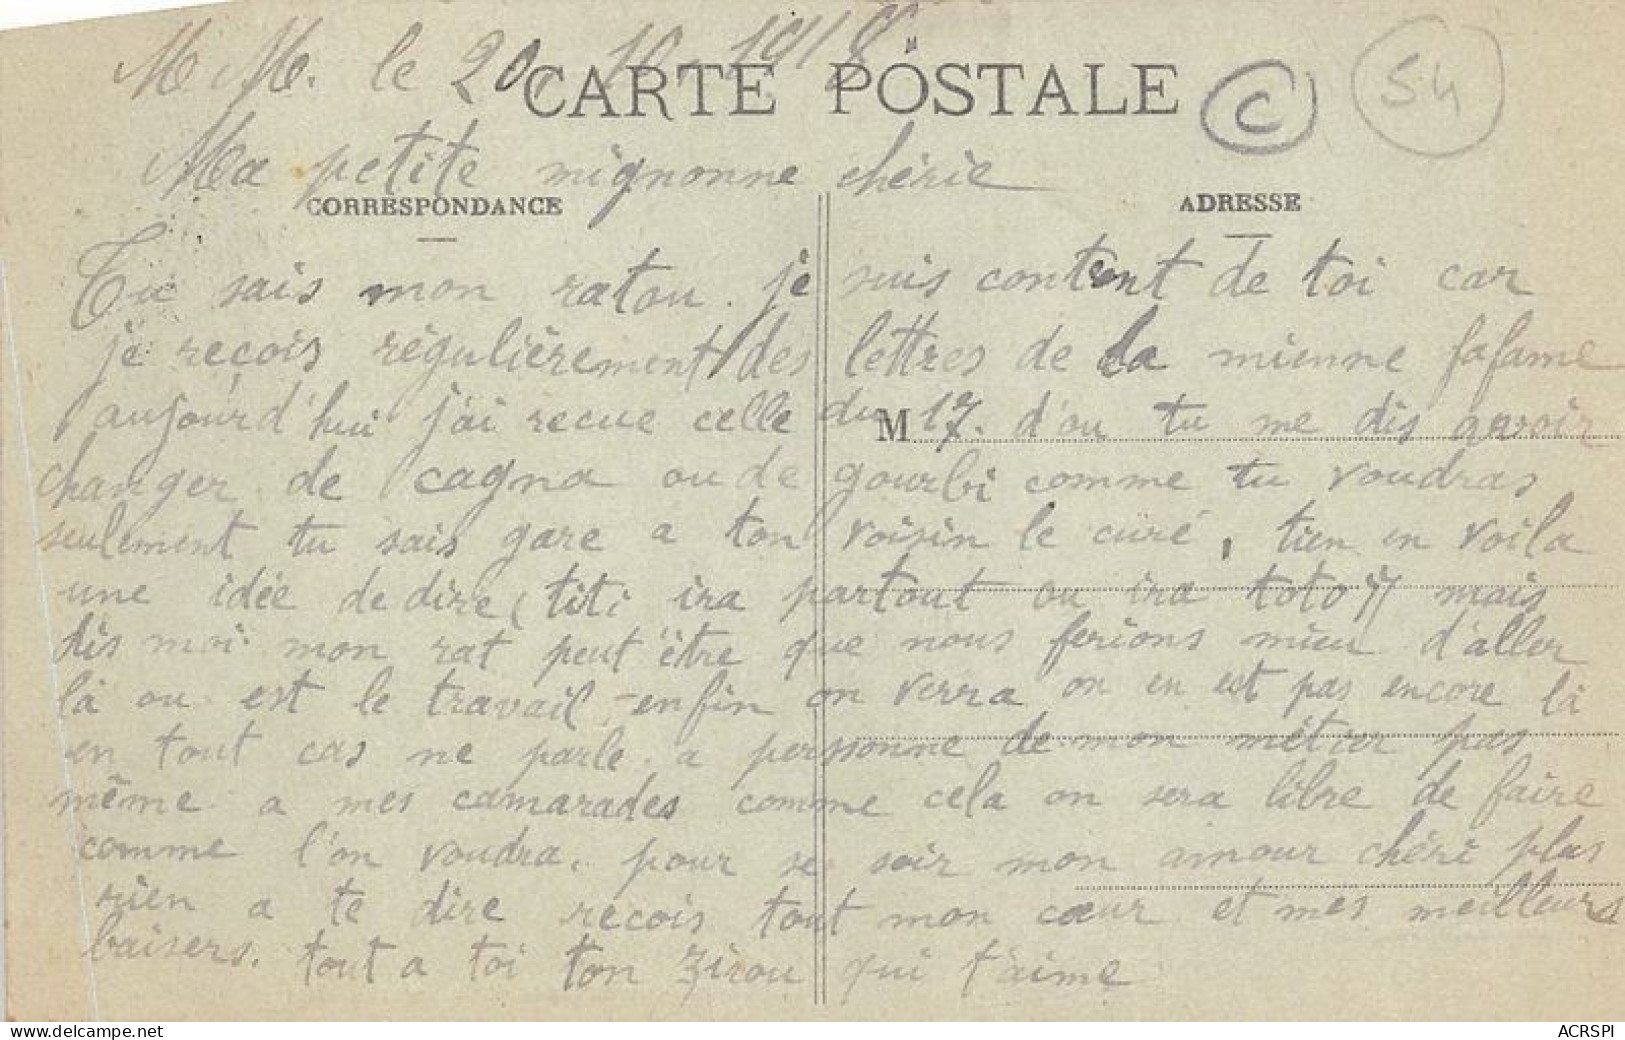 M M. le 20. 10. 1918
CARTE POSTALE
C
54
Ma petite mignonne chérie
CORRESPONDANCE
ADRESSE
Tu sais mon ratou. je suis content de toi car
je reçois régulièrement des lettres de la mienne fafame
aujourd'hui j'ai recue celle du 17. d'ou tu me dis avoir
M
changer de cagna ou de gourbi comme tu voudras
seulement tu sais gare a ton voisin le curé, tien en voila
une idée de dire (titi ira partout ou ira toto)) mais
dis moi mon rat peut être que nous ferions mieu d'aller
là ou est le travail, enfin on verra on en est pas encore là
en tout cas ne parle a personne de mon métier pas
même a mes camarades comme cela on sera libre de faire
comme l'on voudra. pour se soir mon amour chéri plus
rien a te dire recois tout mon cœur et mes meilleurs
baisers. tout a toi ton zirou qui t'aime
www.delcampe.net
ACRSPI